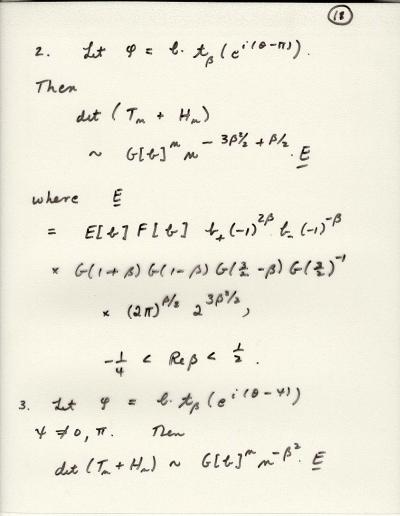 18
2. Let φ = b· t_β (e^{i(θ-π)}).
Then
det (T_n + H_n)
~ G[b]^n n^{-3β²/2 + β/2} · E
where E
= E[b] F[b] b_+(-1)^{2β} b_-(-1)^{-β}
× G(1+β) G(1-β) G(3/2 - β) G(3/2)^{-1}
× (2π)^{β/2} 2^{3β²/2},
-1/4 < Re β < 1/2.
3. Let φ = b· t_β (e^{i(θ-ψ)})
ψ ≠ 0, π. Then
det (T_n + H_n) ~ G[b]^n n^{-β²} · E